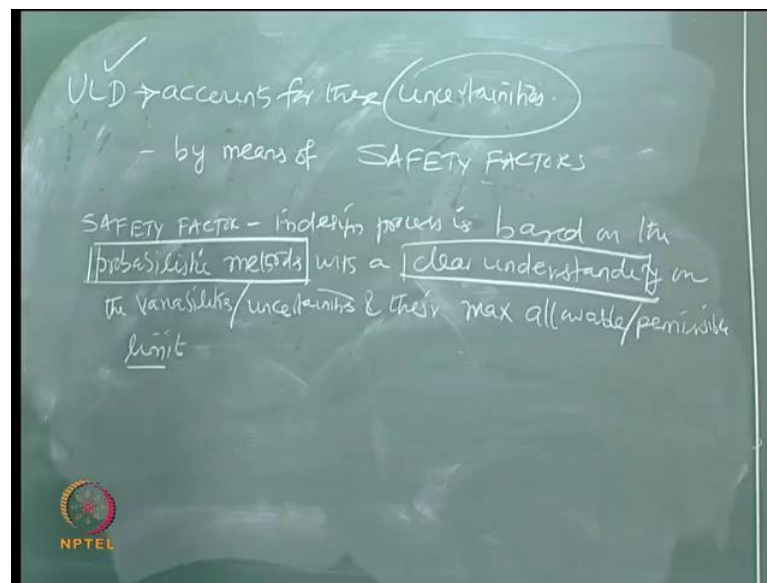 ULD → accounts for these uncertainities.
- by means of SAFETY FACTORS
SAFETY FACTOR - in design process is based on the
probabilistic methods with a clear understanding on
the variabilities/uncertainities & their max allowable/permissible
limit
NPTEL